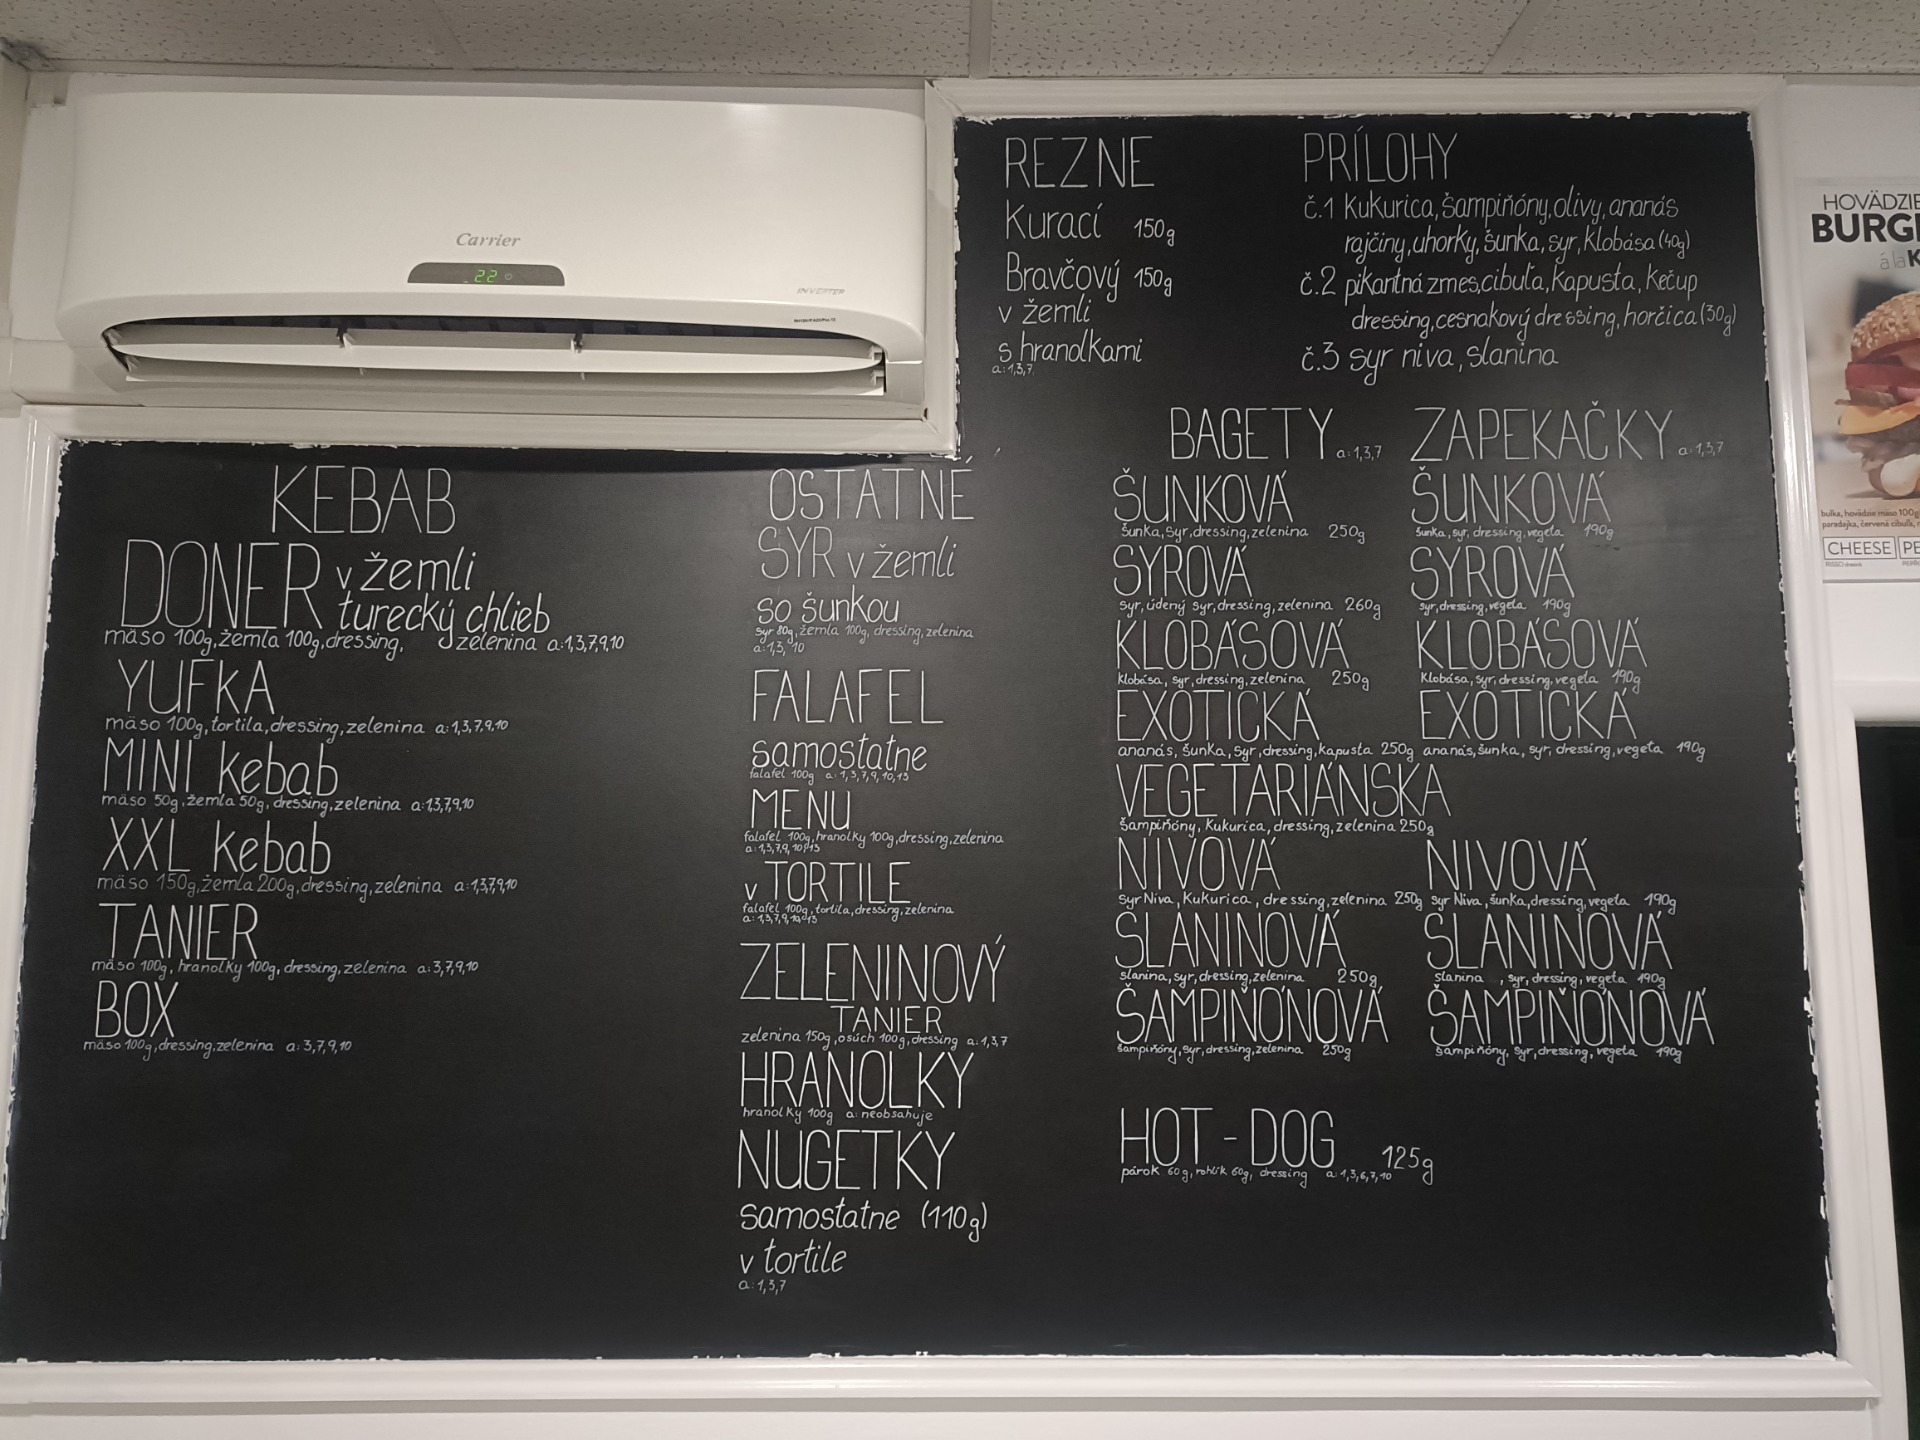 Carrier
22
INVERTER
REZNE
Kurací 150g
Bravčový 150g
v žemli
s hranolkami
a:1,3,7
PRÍLOHY
č.1 Kukurica, šampiňóny, olivy, ananás
rajčiny, uhorky, šunka, syr, klobása (40g)
č.2 pikantná zmes, cibuľa, kapusta, kečup
dressing, cesnakový dressing, horčica (30g)
č.3 syr niva, slanina
KEBAB
DONER v žemli
turecký chlieb
mäso 100g, žemla 100g, dressing, zelenina a:1,3,7,9,10
YUFKA
mäso 100g, tortila, dressing, zelenina a:1,3,7,9,10
MINI kebab
mäso 50g, žemla 50g, dressing, zelenina a:1,3,7,9,10
XXL kebab
mäso 150g, žemla 200g, dressing, zelenina a:1,3,7,9,10
TANIER
mäso 100g, hranolky 100g, dressing, zelenina a:3,7,9,10
BOX
mäso 100g, dressing, zelenina a:3,7,9,10
OSTATNÉ
SYR v žemli
so šunkou
syr 80g, žemla 100g, dressing, zelenina
a:1,3, 10
FALAFEL
samostatne
falafel 100g a:1,3,7,9,10,13
MENU
falafel 100g, hranolky 100g, dressing, zelenina
a:1,3,7,9,10,13
v TORTILE
falafel 100g, tortila, dressing, zelenina
a:1,3,7,9,10,13
ZELENINOVÝ
TANIER
zelenina 150g, osúch 100g, dressing a:1,3,7
HRANOLKY
hranolky 100g a:neobsahuje
NUGETKY
samostatne (110g)
v tortile
a:1,3,7
BAGETY a:1,3,7
ŠUNKOVÁ
šunka, syr, dressing, zelenina 250g
SYROVÁ
syr, údený syr, dressing, zelenina 260g
KLOBÁSOVÁ
klobása, syr, dressing, zelenina 250g
EXOTICKÁ
ananás, šunka, syr, dressing, kapusta 250g
VEGETARIÁNSKA
šampiňóny, kukurica, dressing, zelenina 250g
NIVOVÁ
syr Niva, Kukurica, dressing, zelenina 250g
SLANINOVÁ
slanina, syr, dressing, zelenina 250g
ŠAMPIŇÓNOVÁ
šampiňóny, syr, dressing, zelenina 250g
ZAPEKAČKY a:1,3,7
ŠUNKOVÁ
šunka, syr, dressing, vegeta 190g
SYROVÁ
syr, dressing, vegeta 190g
KLOBÁSOVÁ
Klobása, syr, dressing, vegeta 190g
EXOTICKÁ
ananás, šunka, syr, dressing, vegeta 190g
NIVOVÁ
syr Niva, šunka, dressing, vegeta 190g
SLANINOVÁ
slanina , syr, dressing, vegeta 190g
ŠAMPIŇÓNOVÁ
šampiňóny, syr, dressing, vegeta 190g
HOT-DOG 125g
párok 60g, rohlík 60g, dressing a:1,3,6,7,10
HOVÄDZIE
BURG
á la K
bulka, hovädzie mäso 100g
paradajka, červená cibuľa,
CHEESE PE